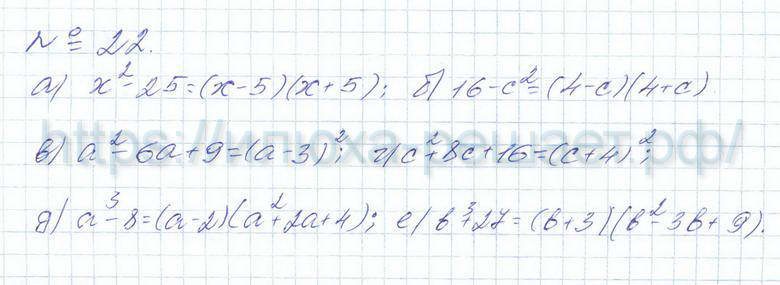 № 22.
а) x² - 25 = (x-5)(x+5); б) 16 - c² = (4-c)(4+c)
https://илюха-решает.рф/
в) a² - 6a + 9 = (a-3)²; г) c² + 8c + 16 = (c+4)²;
д) a³ - 8 = (a-2)(a² + 2a + 4); е) b³ + 27 = (b+3)(b² - 3b + 9).